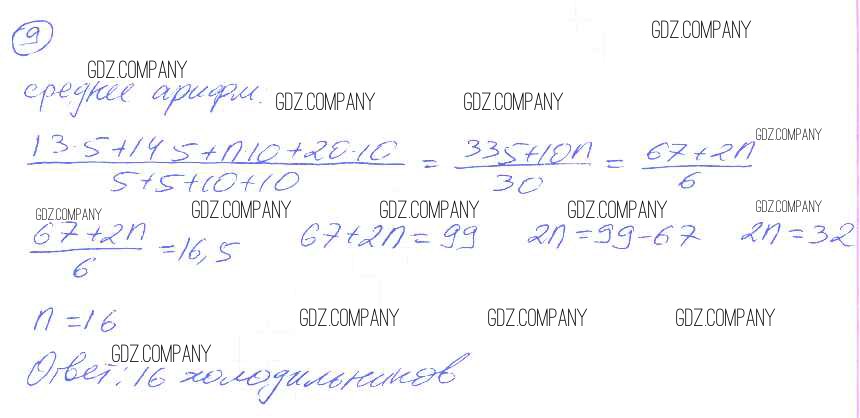 9
GDZ.COMPANY
GDZ.COMPANY
среднее арифм.
GDZ.COMPANY GDZ.COMPANY
(13·5+14·5+n·10+20·10)/(5+5+10+10) = (335+10n)/30 = (67+2n)/6
GDZ.COMPANY
GDZ.COMPANY GDZ.COMPANY GDZ.COMPANY GDZ.COMPANY GDZ.COMPANY
(67+2n)/6 =16,5 67+2n=99 2n=99-67 2n=32
n=16
GDZ.COMPANY GDZ.COMPANY GDZ.COMPANY
GDZ.COMPANY
Ответ: 16 холодильников